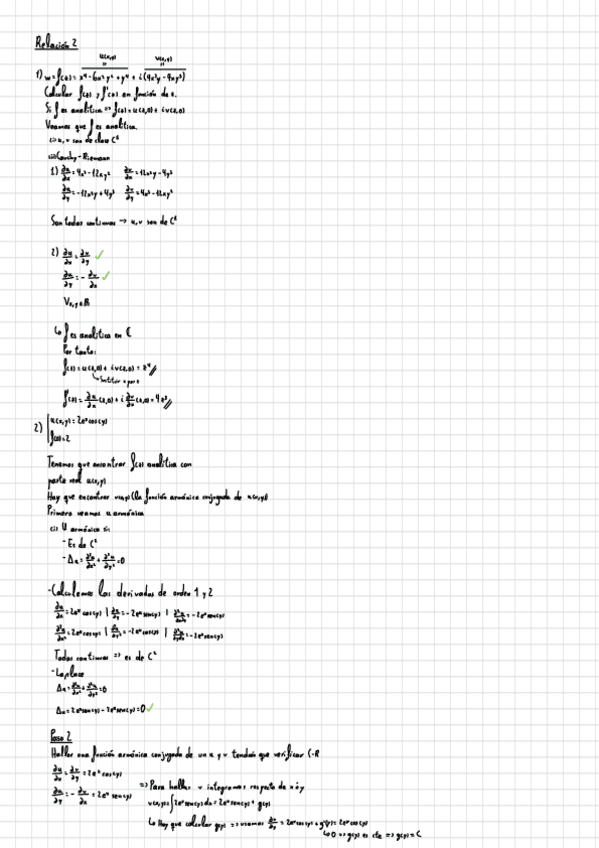 Relación 2
u(x,y) v(x,y)
1) w=f(z)= x⁴-6x²y²+y⁴ + i(4x³y-4xy³)
Calcular f(z) y f'(z) en función de z.
Si f es analítica => f(z)=u(z,0)+ iv(z,0)
Veamos que f es analítica.
(i) u, v son de clase C¹
(ii) Cauchy-Riemann
1) ∂u/∂x=4x³-12xy² ∂v/∂x=12x²y-4y³
∂u/∂y=-12x²y+4y³ ∂v/∂y=4x³-12xy²
Son todas continuas → u,v son de C¹
2) ∂u/∂x=∂v/∂y ✓
∂u/∂y=-∂v/∂x ✓
∀x,y∈ℝ
↳ f es analítica en ℂ
Por tanto:
f(z)=u(z,0)+ iv(z,0)=z⁴//
f'(z)=∂u/∂x(z,0)+i ∂v/∂x(z,0)=4z³//
2) u(x,y)=2eˣcos(y)
f(0)=2
Tenemos que encontrar f(z) analítica con
parte real u(x,y)
Hay que encontrar v(x,y) (la función armónica conjugada de u(x,y))
Primero veamos u armónica
(i) U armónica si:
- Es de C²
- Δu=∂²u/∂x²+∂²u/∂y²=0
-Calculemos las derivadas de orden 1 y 2
∂u/∂x=2eˣcos(y) | ∂u/∂y=-2eˣsen(y) | ∂²u/∂x∂y=-2eˣsen(y)
∂²u/∂x²=2eˣcos(y) | ∂²u/∂y²=-2eˣcos(y) | ∂²u/∂y∂x=-2eˣsen(y)
Todas continuas => es de C²
-Laplace
Δu=∂²u/∂x²+∂²u/∂y²=0
Δu=2eˣsen(y)-2eˣsen(y)=0 ✓
Paso 2
Hallar una función armónica conjugada de u x y v tendrán que verificar C-R
∂u/∂x=∂v/∂y=2eˣcos(y)
∂u/∂y=-∂v/∂x=2eˣsen(y) => Para hallar v integramos respecto de x ó y
v(x,y)=∫2eˣsen(y)dx=2eˣsen(y)+g(y)
↳ Hay que calcular g(y) => usamos ∂v/∂y=2eˣcos(y)+g'(y)=2eˣcos(y)
↳0 => g(y) es cte => g(y)=C